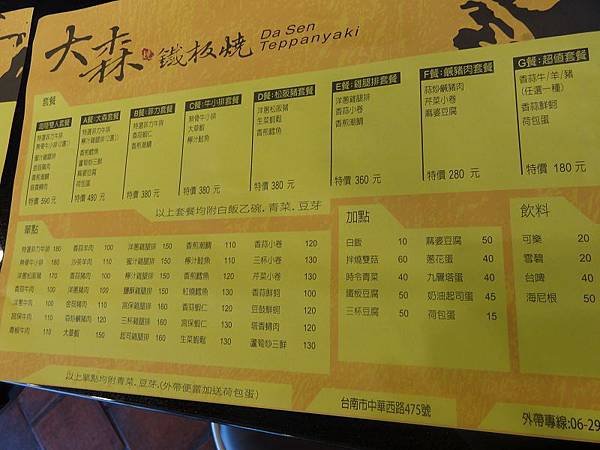 大森鐵板燒
Da Sen
Teppanyaki
套餐
超值雙人套餐
特選菲力牛排
無骨牛小排(2選1)
蜜汁雞腿排
香蒜豬肉
香煎潮鯛
特價 590 元
A餐:大森套餐
特選菲力牛排
檸汁雞腿排(2選1)
香煎鱈魚
蘆筍炒三鮮
麻婆豆腐
荷包蛋
特價 480 元
B餐:菲力套餐
特選菲力牛排
香蒜蝦仁
香煎潮鯛
特價 380 元
C餐:牛小排套餐
無骨牛小排
大草蝦
檸汁鮭魚
特價 380 元
D餐:松阪豬套餐
洋蔥松阪豬
生菜蝦鬆
香煎鱈魚
特價 380 元
E餐:雞腿排套餐
洋蔥雞腿排
香蒜小卷
香煎潮鯛
特價 360 元
F餐:鹹豬肉套餐
蒜炒鹹豬肉
芹菜小卷
麻婆豆腐
特價 280 元
G餐:超值套餐
香蒜牛/羊/豬
(任選一種)
香蒜鮮蚵
荷包蛋
特價 180 元
以上套餐均附白飯乙碗.青菜.豆芽
單點
特選菲力牛排 180
無骨牛小排 160
洋蔥松阪豬 170
香蒜牛肉 110
洋蔥牛肉 110
宮保牛肉 110
青椒牛肉 110
香蒜羊肉 100
沙茶羊肉 100
香蒜豬肉 100
洋蔥豬肉 100
蒜炒鹹豬肉 120
大草蝦 150
洋蔥雞腿排 150
蜜汁雞腿排 150
檸汁雞腿排 150
鹽酥雞腿排 150
宮保雞腿排 150
三杯雞腿排 160
起司雞腿排 160
香煎潮鯛 110
檸汁鮭魚 110
香煎鱈魚 130
紅燒鱈魚 130
香蒜蝦仁 130
宮保蝦仁 130
生菜蝦鬆 130
香蒜小卷 120
三杯小卷 130
芹菜小卷 120
香蒜鮮蚵 100
豆鼓鮮蚵 120
塔香蜊肉 120
蘆筍炒三鮮 130
以上單點均附青菜.豆芽.(外帶便當加送荷包蛋)
加點
白飯 10
拌燒雙菇 60
時令青菜 40
鐵板豆腐 40
三杯豆腐 50
蔴婆豆腐 50
蔥花蛋 40
九層塔蛋 40
奶油起司蛋 45
荷包蛋 15
飲料
可樂 20
雪碧 20
台啤 40
海尼根 50
台南市中華西路475號
外帶專線:06-29